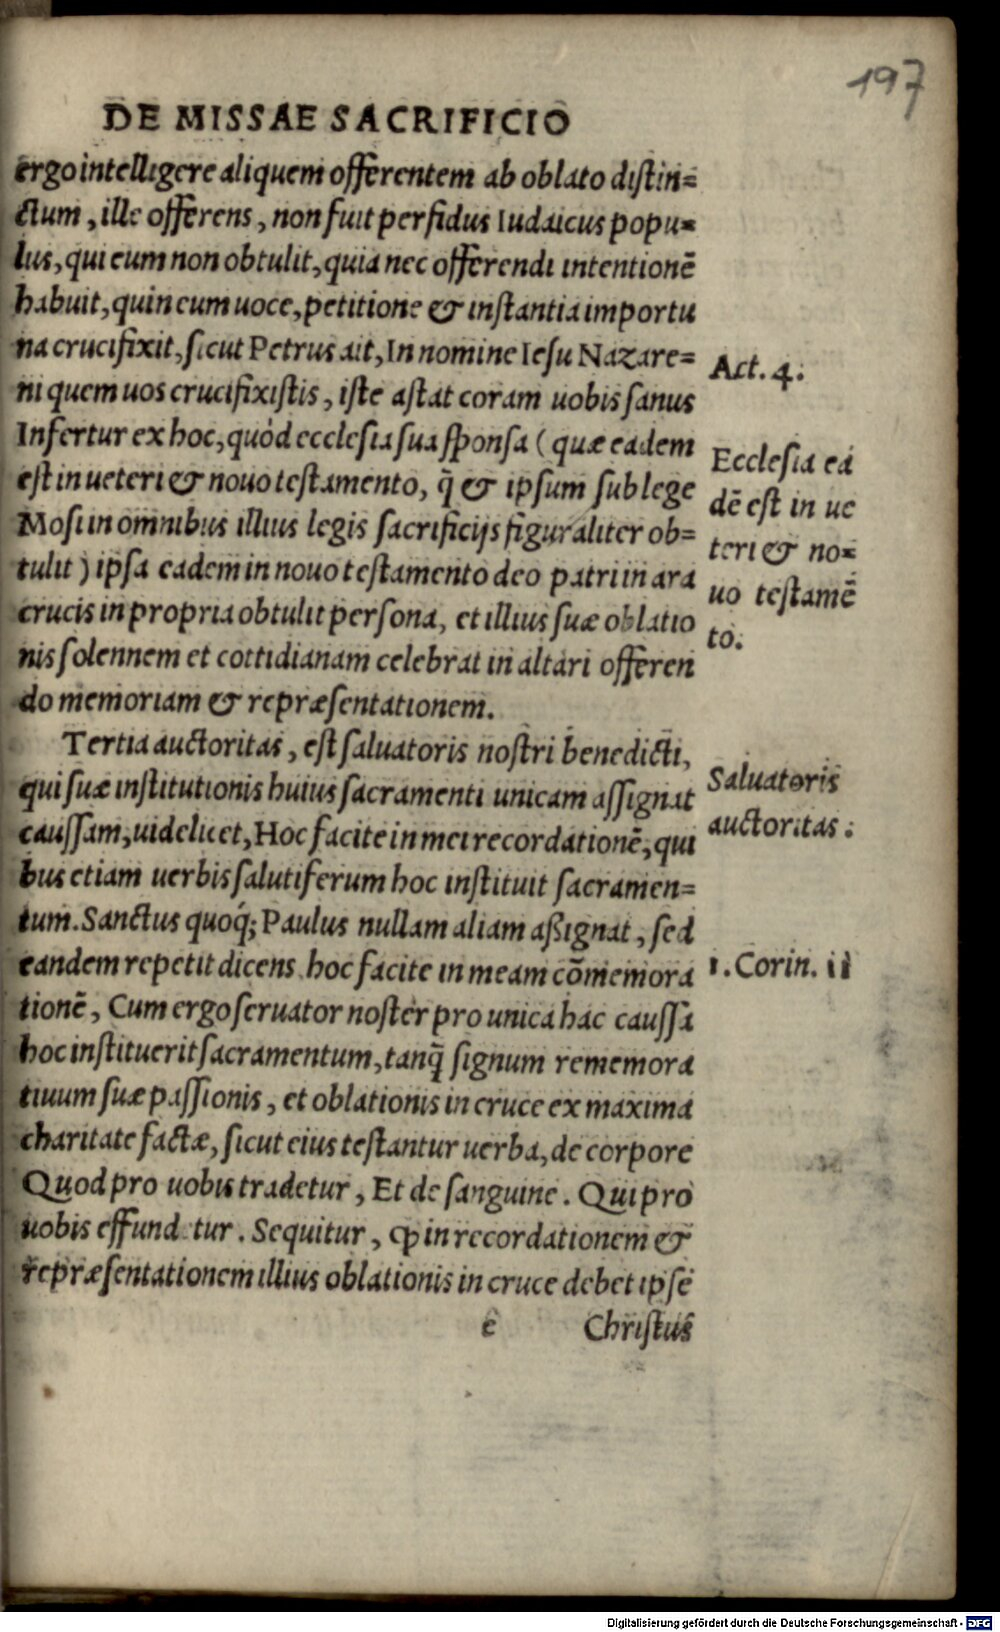 197
DE MISSAE SACRIFICIO
ergo intelligere aliquem offerentem ab oblato distin=
ctum, ille offerens, non fuit perfidus Iudaicus popu=
lus, qui eum non obtulit, quia nec offerendi intentionē
habuit, quin eum uoce, petitione & instantia importu
na crucifixit, sicut Petrus ait, In nomine Iesu Nazare=
ni quem uos crucifixistis, iste astat coram uobis sanus
Infertur ex hoc, quòd ecclesia sua sponsa (quæ eadem
est in ueteri & nouo testamento, q̄ & ipsum sub lege
Mosi in omnibus illius legis sacrificijs figuraliter ob=
tulit) ipsa eadem in nouo testamento deo patri in ara
crucis in propria obtulit persona, et illius suæ oblatio
nis solennem et cottidianam celebrat in altari offeren
do memoriam & repræsentationem.
Tertia auctoritas, est saluatoris nostri benedicti,
qui suæ institutionis huius sacramenti unicam assignat
caussam, uidelicet, Hoc facite in mei recordationē, qui
bus etiam uerbis salutiferum hoc instituit sacramen=
tum. Sanctus quoq́; Paulus nullam aliam aßignat, sed
eandem repetit dicens hoc facite in meam cōmemora
tionē, Cum ergo seruator noster pro unica hac caussa
hoc instituerit sacramentum, tanq̄ signum rememora
tiuum suæ passionis, et oblationis in cruce ex maxima
charitate factæ, sicut eius testantur uerba, de corpore
Quod pro uobis tradetur, Et de sanguine. Qui pro
uobis effund tur. Sequitur, ꝙ in recordationem &
repræsentationem illius oblationis in cruce debet ipse
e Christus
Act. 4.
Ecclesia eá
dē est in ue
teri & no=
uo testamē
to.
Saluatoris
auctoritas.
1. Corin. 11
Digitalisierung gefördert durch die Deutsche Forschungsgemeinschaft - DFG